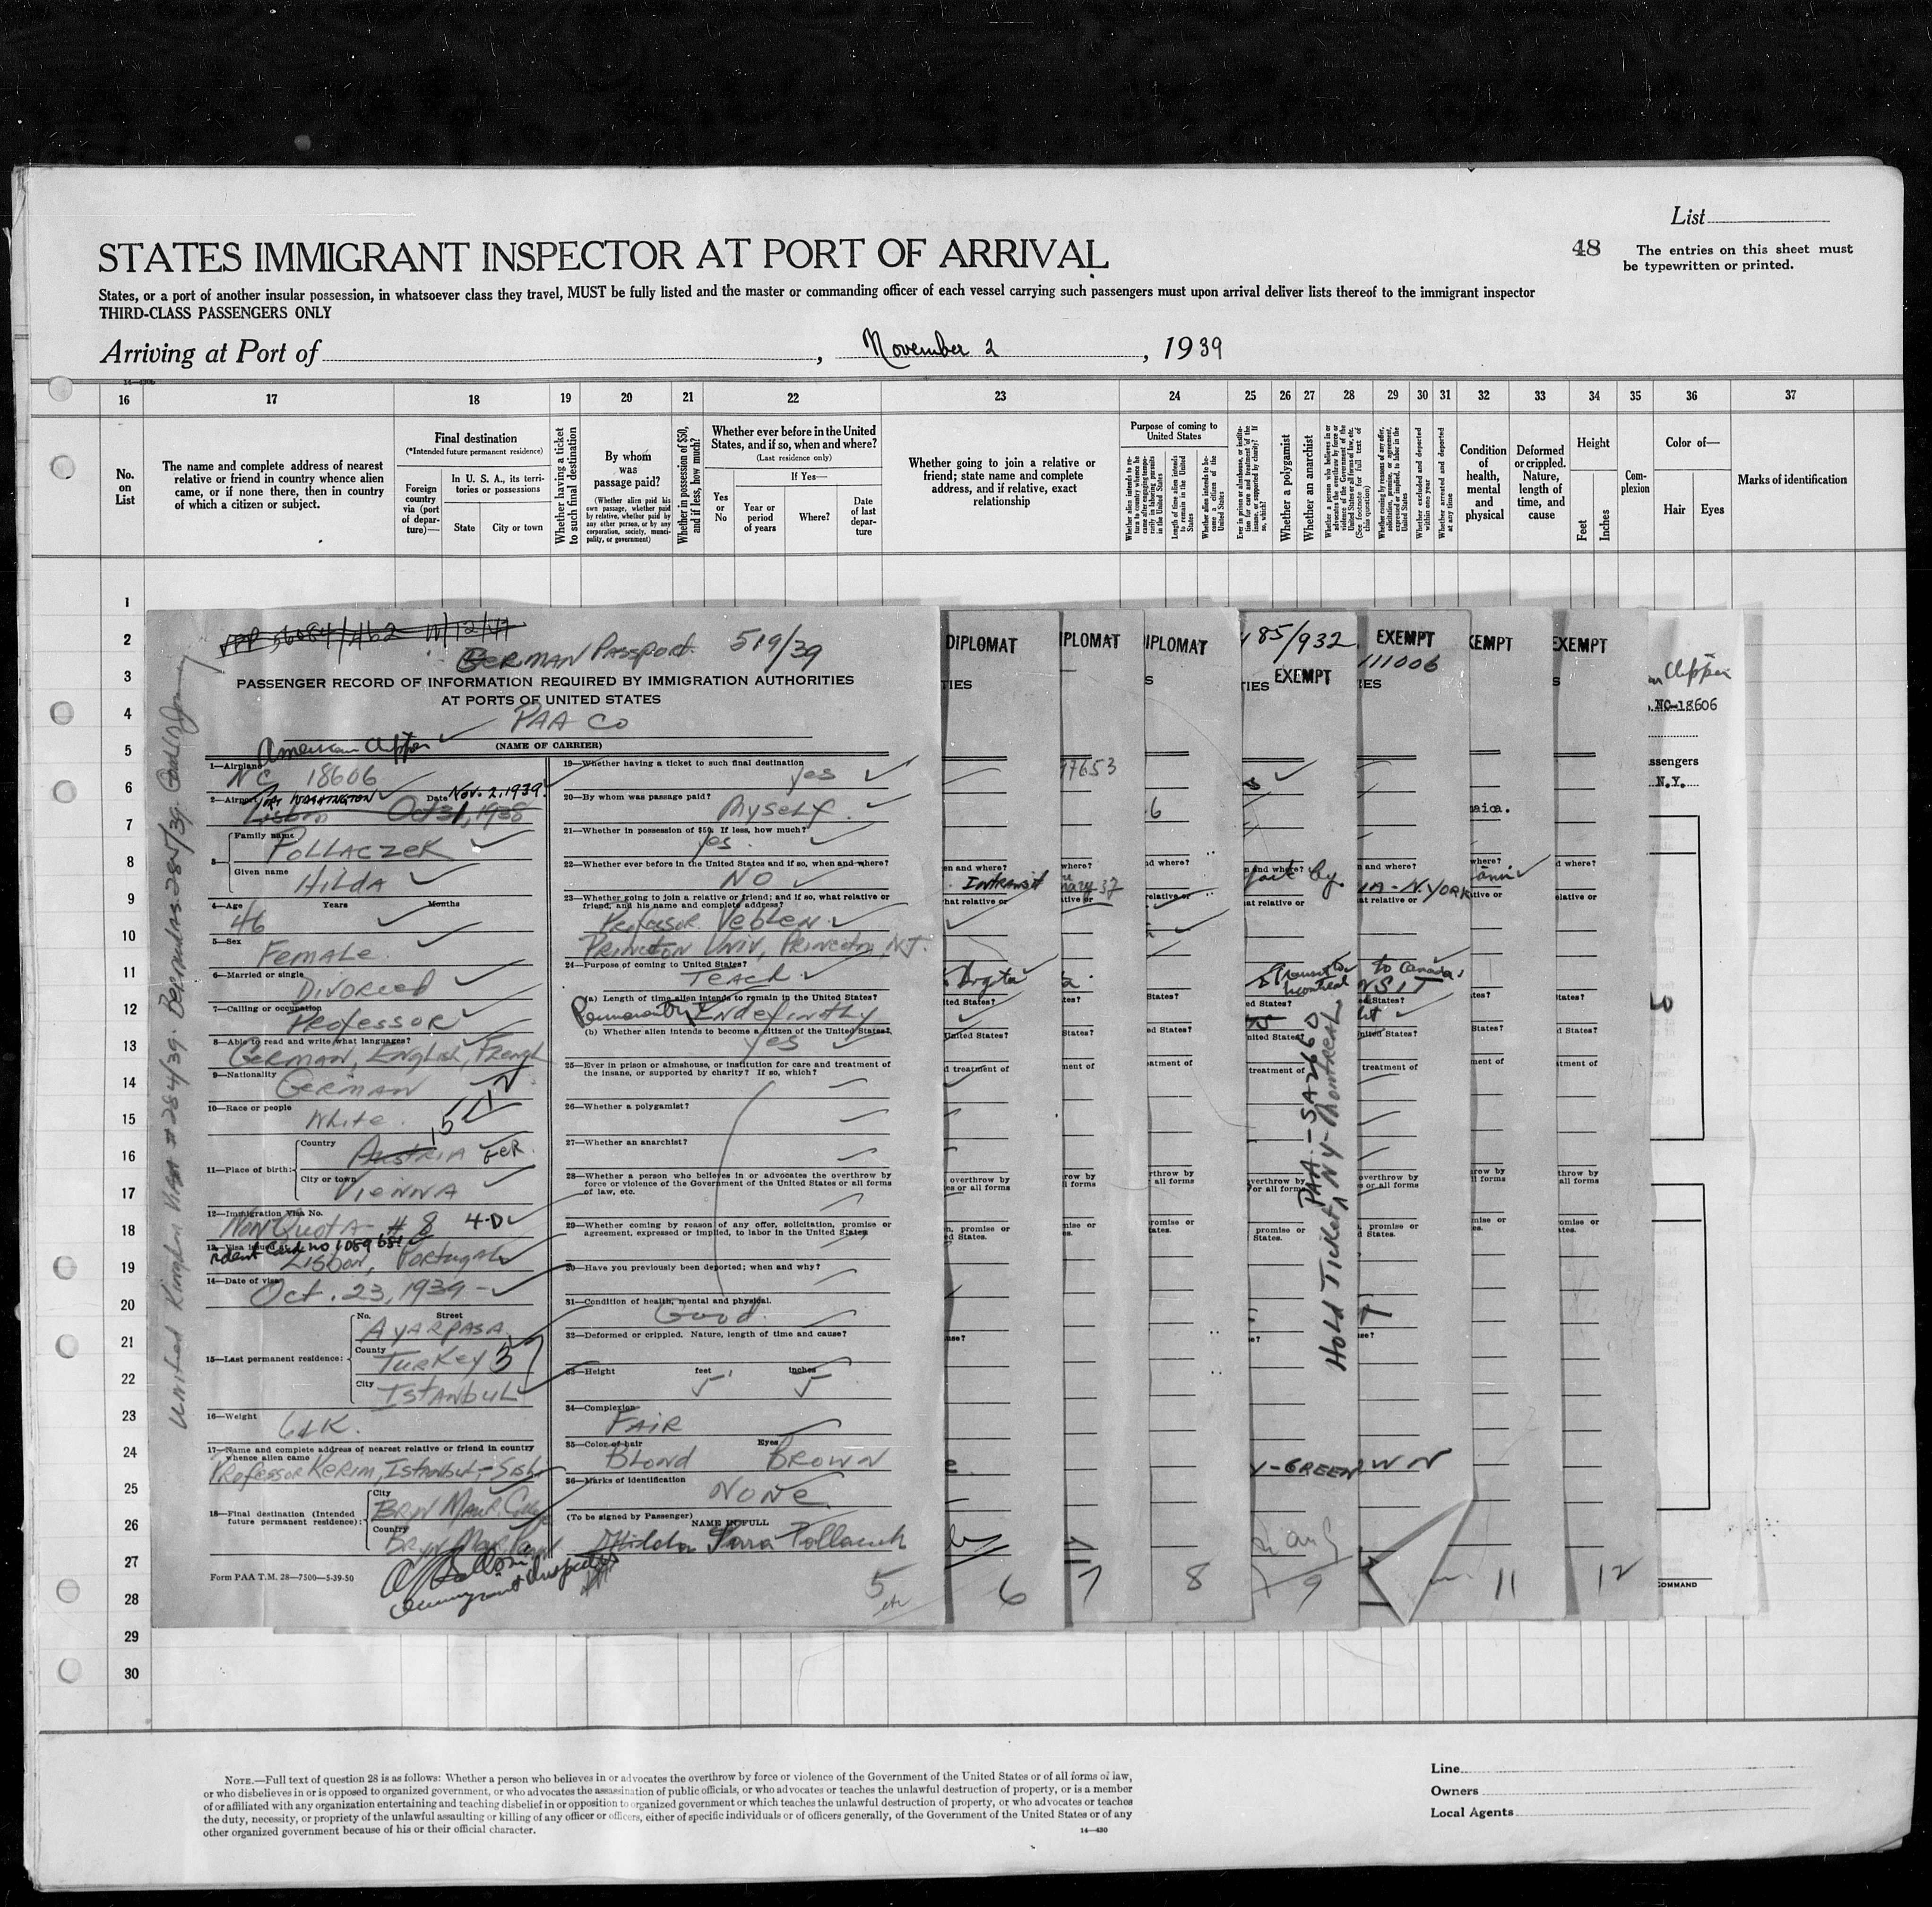 List
48
The entries on this sheet must
be typewritten or printed.
STATES IMMIGRANT INSPECTOR AT PORT OF ARRIVAL
States, or a port of another insular possession, in whatsoever class they travel, MUST be fully listed and the master or commanding officer of each vessel carrying such passengers must upon arrival deliver lists thereof to the immigrant inspector
THIRD-CLASS PASSENGERS ONLY
Arriving at Port of , November 2 , 1939
16 17 18 19 20 21 22 23 24 25 26 27 28 29 30 31 32 33 34 35 36 37
No. on List
The name and complete address of nearest
relative or friend in country whence alien
came, or if none there, then in country
of which a citizen or subject.
Final destination
(*Intended future permanent residence)
Foreign country via (port of departure)—
In U. S. A., its territories or possessions
State
City or town
Whether having a ticket to such final destination
By whom was passage paid?
(Whether alien paid his own passage, whether paid by relative, whether paid by any other person, or by any corporation, society, municipality, or government)
Whether in possession of $50, and if less, how much?
Whether ever before in the United States, and if so, when and where?
(Last residence only)
Yes or No
If Yes—
Year or period of years
Where?
Date of last departure
Whether going to join a relative or
friend; state name and complete
address, and if relative, exact
relationship
Purpose of coming to United States
Whether alien intends to return to country whence he came after engaging temporarily in laboring pursuits in the United States
Length of time alien intends to remain in the United States
Whether alien intends to become a citizen of the United States
Ever in prison or almshouse, or institution for care and treatment of the insane, or supported by charity? If so, which?
Whether a polygamist
Whether an anarchist
Whether a person who believes in or advocates the overthrow by force or violence of the Government of the United States or all forms of law, etc. (See footnote for full text of this question)
Whether coming by reasons of any offer, solicitation, promise, or agreement, expressed or implied, to labor in the United States
Whether excluded and deported within one year
Whether arrested and deported at any time
Condition of health, mental and physical
Deformed or crippled. Nature, length of time, and cause
Height
Feet
Inches
Complexion
Color of—
Hair
Eyes
Marks of identification
1
2
3
4
5
6
7
8
9
10
11
12
13
14
15
16
17
18
19
20
21
22
23
24
25
26
27
28
29
30
GERMAN PASSPORT. 519/39
PASSENGER RECORD OF INFORMATION REQUIRED BY IMMIGRATION AUTHORITIES
AT PORTS OF UNITED STATES
PAA Co
(NAME OF CARRIER)
American Clipper
1—Airplane NC 18606
2—Airport Port Washington Date Nov. 2, 1939
Lisbon Oct 31, 1938
3— Family name POLLACZEK
Given name HILDA
4—Age Years Months
46
5—Sex
FEMALE
6—Married or single
DIVORCED
7—Calling or occupation
PROFESSOR
8—Able to read and write what languages?
GERMAN, English, French
9—Nationality
GERMAN
10—Race or people
White
11—Place of birth: Country AUSTRIA GER.
City or town VIENNA
12—Immigration Visa No.
NON QUOTA # 8 4-D
13—Visa issued at
Ident Card no 1089651
LISBON, Portugal
14—Date of visa
Oct. 23, 1939
15—Last permanent residence: No. Street AYARPASA
County TURKEY
City ISTANBUL
16—Weight
17—Name and complete address of nearest relative or friend in country
whence alien came
Professor Kerim, Istanbul,
18—Final destination (Intended
future permanent residence): City BRYN MAWR College
Country BRYN MAWR, Penn
Immigrant Inspector
Form PAA T.M. 28—7500—5-39-50
19—Whether having a ticket to such final destination
yes
20—By whom was passage paid?
MYSELF
21—Whether in possession of $50. If less, how much?
yes
22—Whether ever before in the United States and if so, when and where?
NO
23—Whether going to join a relative or friend; and if so, what relative or
friend, and his name and complete address?
Professor Veblen
PRINCETON UNIV, PRINCETON, NJ.
24—Purpose of coming to United States?
TEACH
(a) Length of time alien intends to remain in the United States?
Permanently Indefinitly
(b) Whether alien intends to become a citizen of the United States?
yes
25—Ever in prison or almshouse, or institution for care and treatment of
the insane, or supported by charity? If so, which?
26—Whether a polygamist?
27—Whether an anarchist?
28—Whether a person who believes in or advocates the overthrow by
force or violence of the Government of the United States or all forms
of law, etc.
29—Whether coming by reason of any offer, solicitation, promise or
agreement, expressed or implied, to labor in the United States
30—Have you previously been deported; when and why?
31—Condition of health, mental and physical.
Good
32—Deformed or crippled. Nature, length of time and cause?
33—Height feet inches
5' 5
34—Complexion
FAIR
35—Color of hair Eyes
BLOND BROWN
36—Marks of identification
NONE
(To be signed by Passenger) NAME IN FULL
Hilda Sara Pollaczek
5
DIPLOMAT
INTRANSIT
6
IPLOMAT
17653
7
IPLOMAT
8
185/932
EXEMPT
transit to
Montreal
Y-GREEN
9
Hold Ticket PAA - SA2660
NY-Montreal
EXEMPT
111006
N.YORK
to Canada
NSIT
WN
XEMPT
11
EXEMPT
12
Clipper
NC-18606
ssengers
N.Y.
COMMAND
NOTE.—Full text of question 28 is as follows: Whether a person who believes in or advocates the overthrow by force or violence of the Government of the United States or of all forms of law,
or who disbelieves in or is opposed to organized government, or who advocates the assassination of public officials, or who advocates or teaches the unlawful destruction of property, or is a member
of or affiliated with any organization entertaining and teaching disbelief in or opposition to organized government or which teaches the unlawful destruction of property, or who advocates or teaches
the duty, necessity, or propriety of the unlawful assaulting or killing of any officer or officers, either of specific individuals or of officers generally, of the Government of the United States or of any
other organized government because of his or their official character.
14—430
Line
Owners
Local Agents